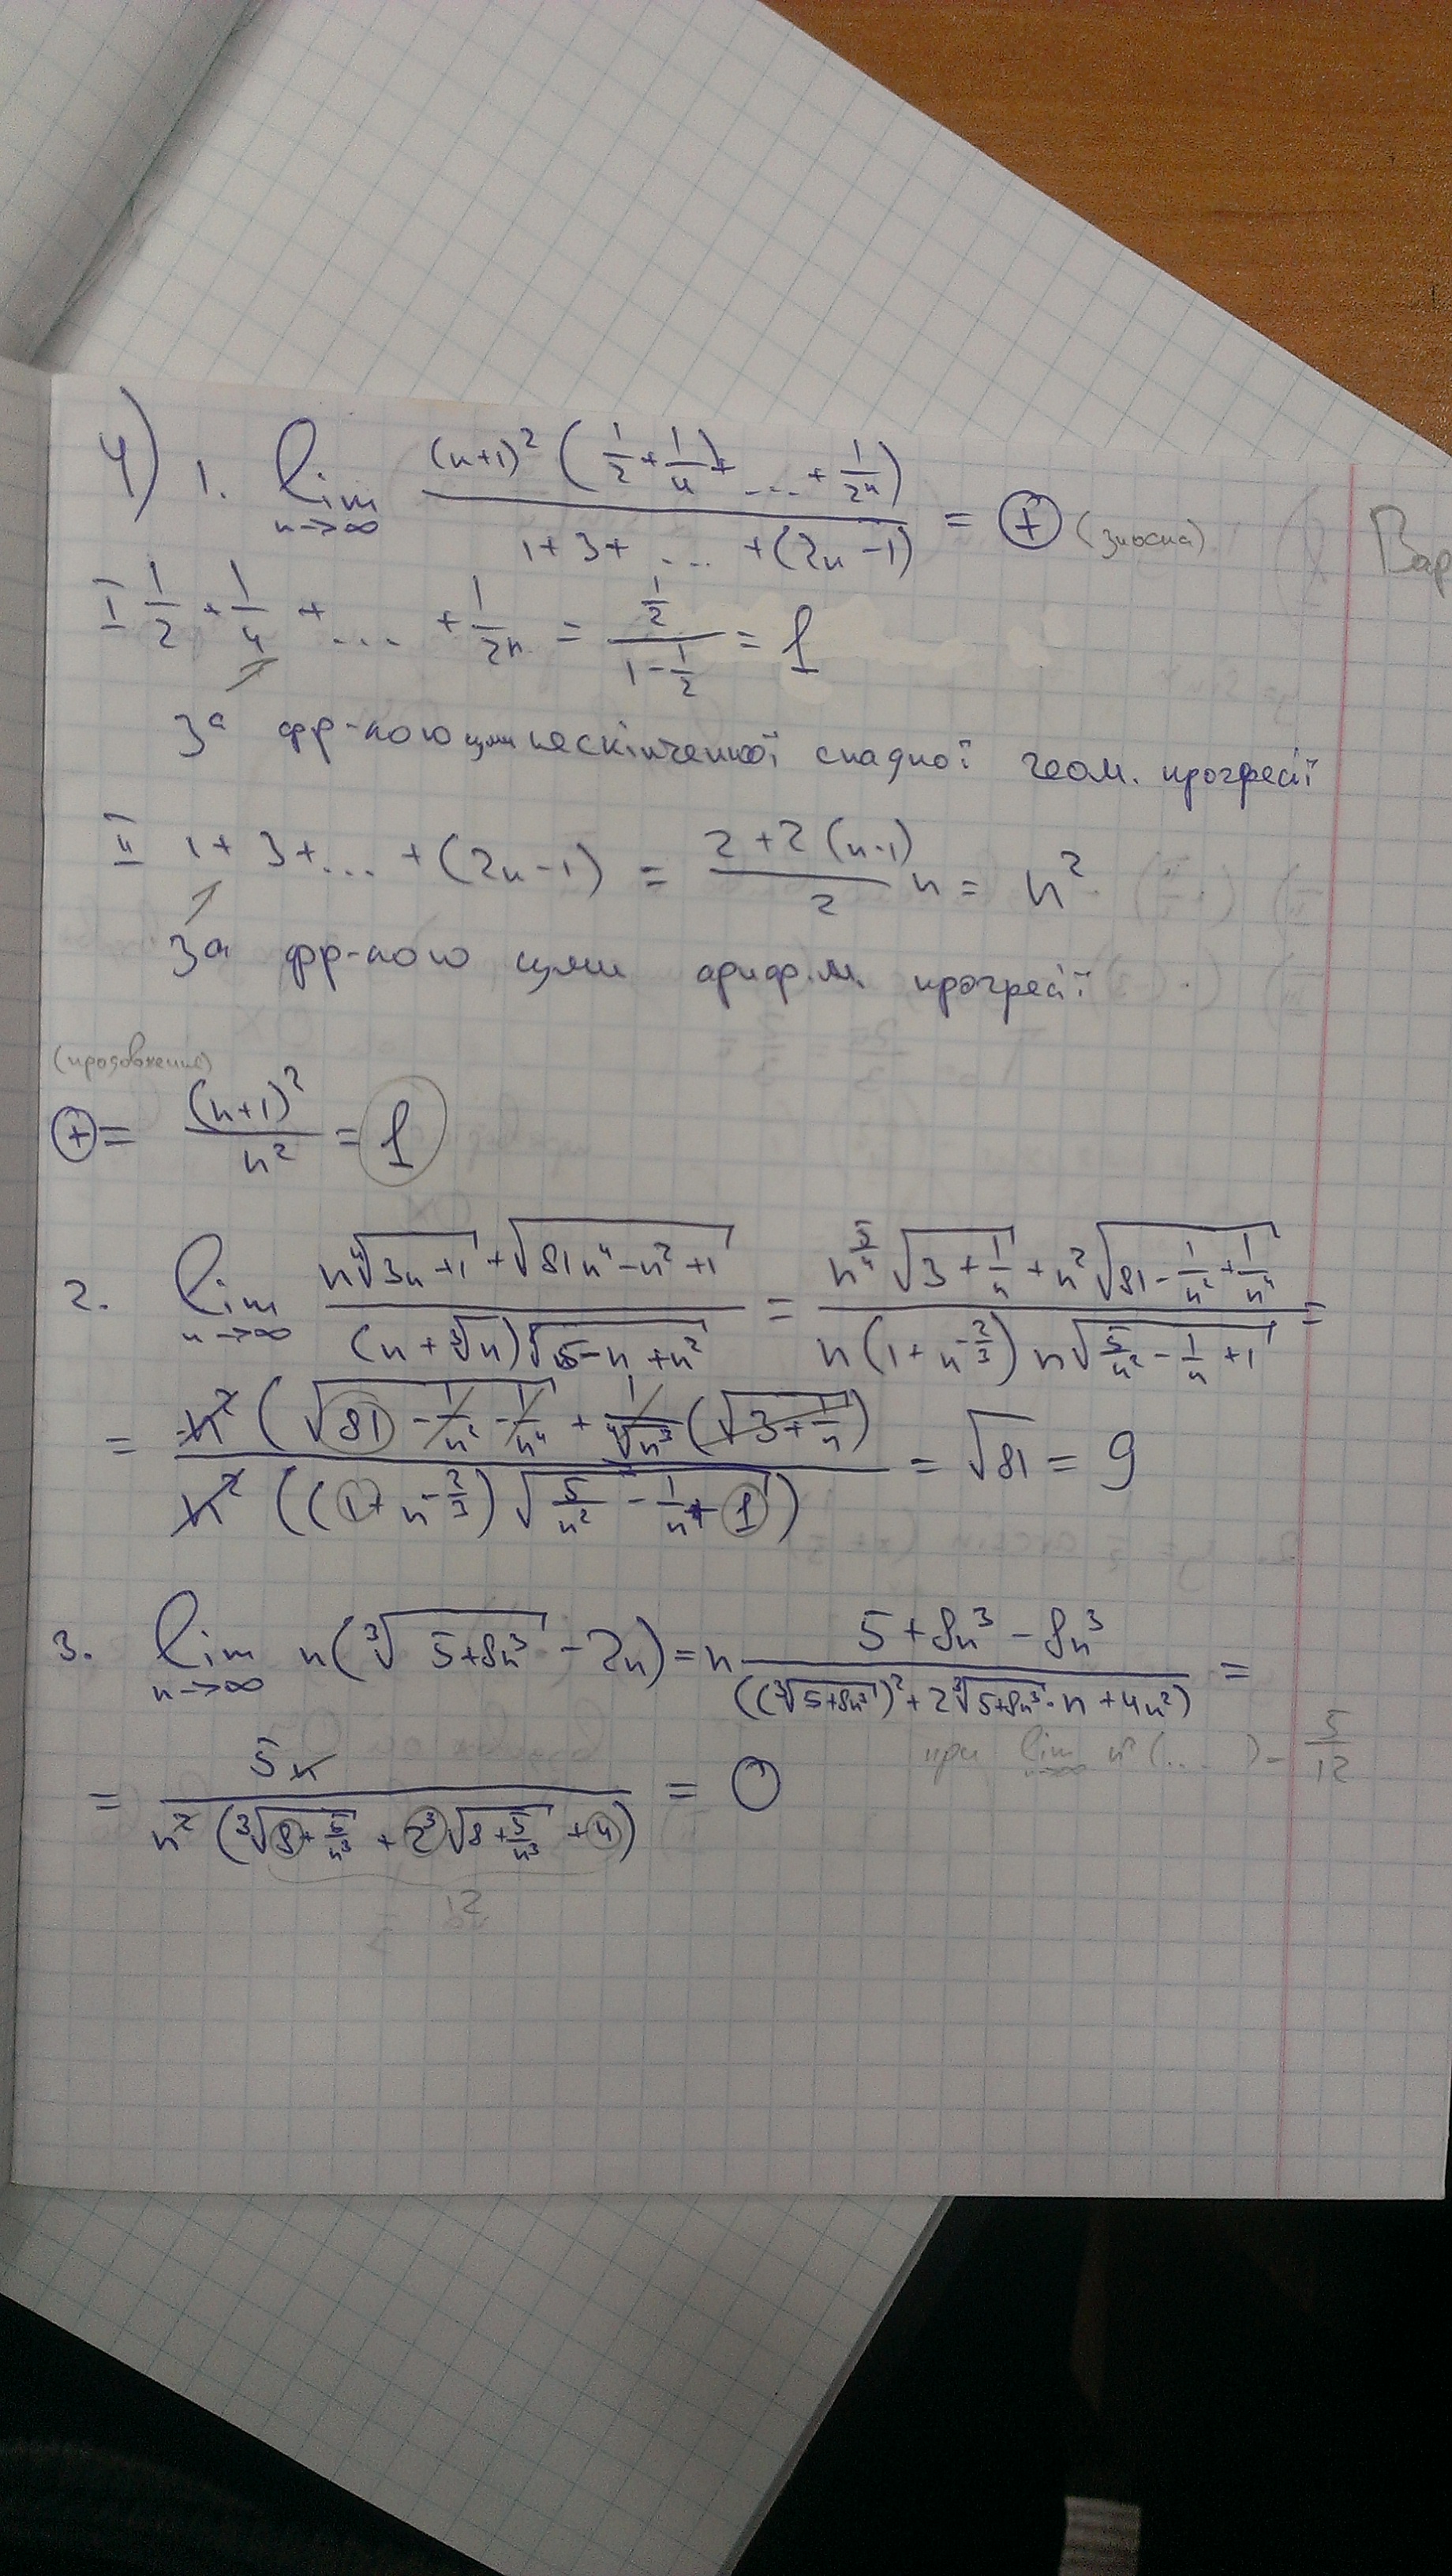 4) 1. lim n→∞ (n+1)² (1/2 + 1/4 + ... + 1/2ⁿ) / (1+3+ ... +(2n-1)) = ⊕ (зноска)
Вар
I 1/2 + 1/4 + ... + 1/2n = (1/2)/(1-1/2) = 1
За фр-кою суми нескінченної спадної геом. прогресії
II 1+3+... +(2n-1) = (2+2(n-1))/2 n = n²
За фр-кою суми ариф.м. прогресії
(продовження)
⊕= (n+1)²/n² = 1
2. lim n→∞ (n⁴√(3n+1) + √(81n⁴-n²+1)) / ((n+³√n)√(5-n+n²)) = (n^(5/4) √(3+1/n) + n²√(81-1/n²+1/n⁴)) / (n(1+n^(-2/3)) n√(5/n²-1/n+1)) =
= n²(√(81-1/n²-1/n⁴) + 1/⁴√n³ (√(3+1/n))) / (n²((1+n^(-2/3))√(5/n²-1/n+1))) = √81 = 9
3. lim n→∞ n(³√(5+8n³) - 2n) = n (5+8n³-8n³) / ((³√(5+8n³))²+2³√(5+8n³)·n+4n²) =
при lim n→∞ n²(...) = 5/12
= 5n / (n²(³√(8+5/n³) + 2³√(8+5/n³) + 4)) = 0
12